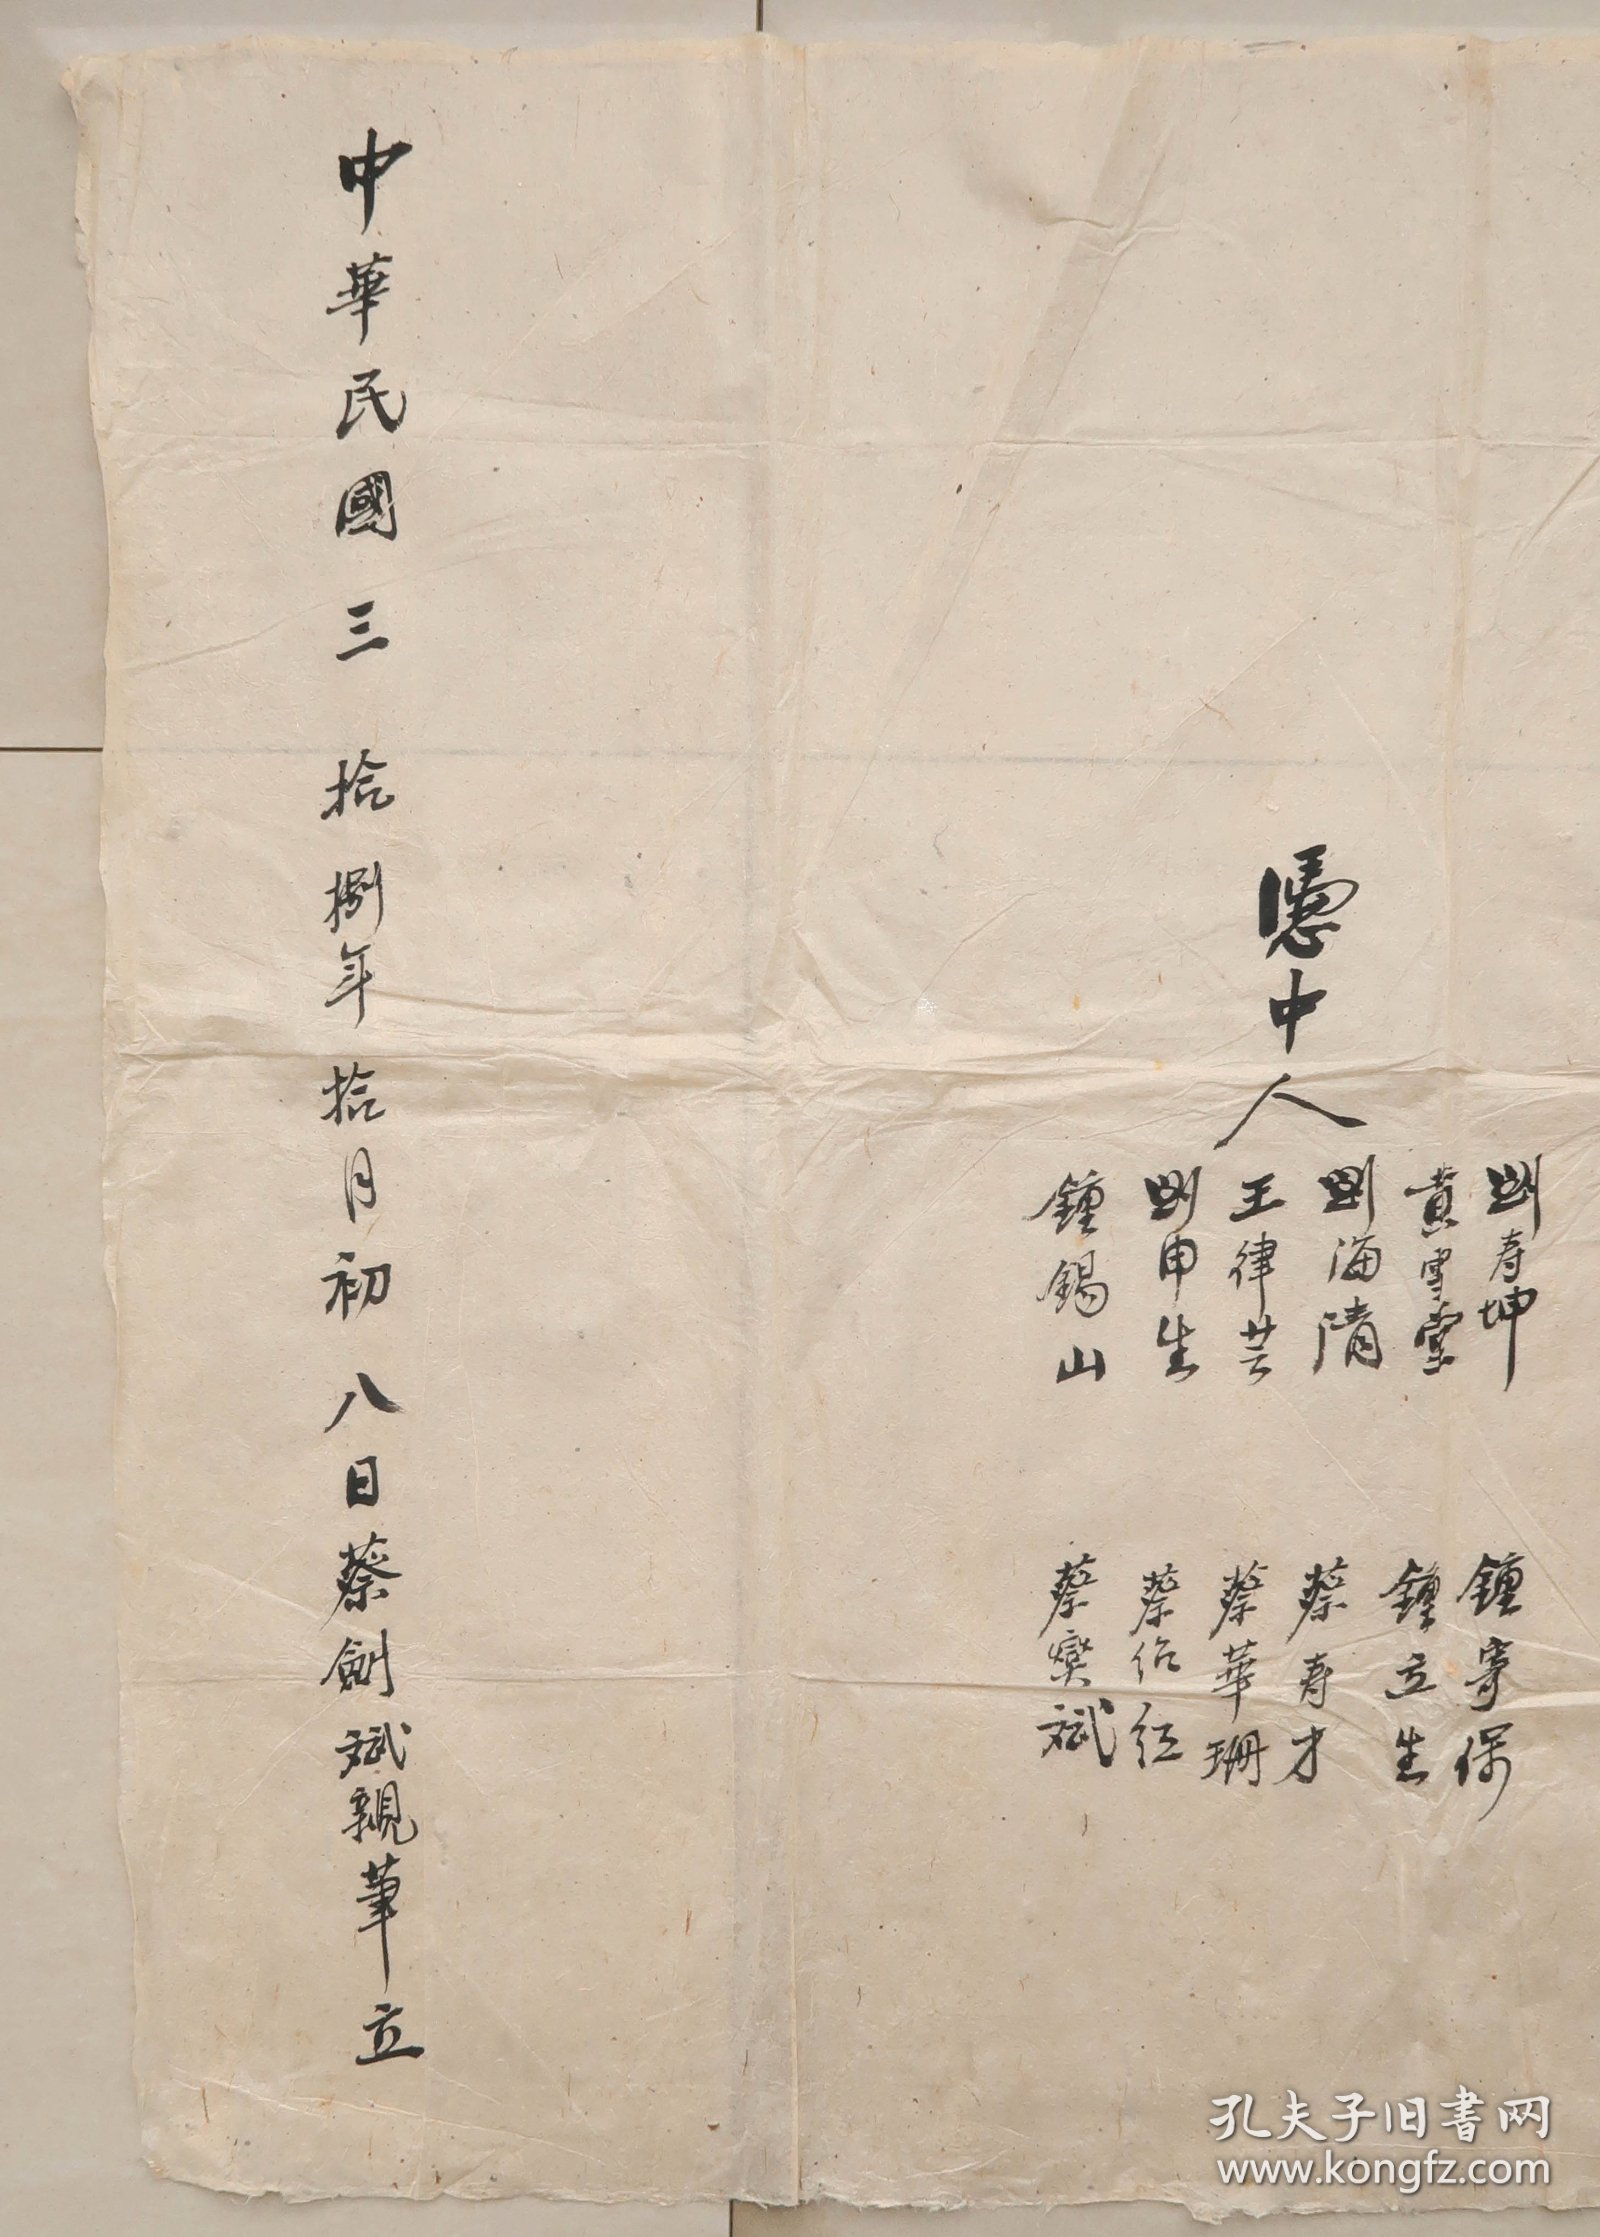 憑中人
劉寿坤
黄雪堂
劉海清
王律芸
劉申生
鍾錫山
鍾寄保
鍾立生
蔡寿才
蔡華珊
蔡作红
蔡爕斌
中華民國三拾捌年拾月初八日蔡劍斌親筆立
孔夫子旧書网
www.kongfz.com